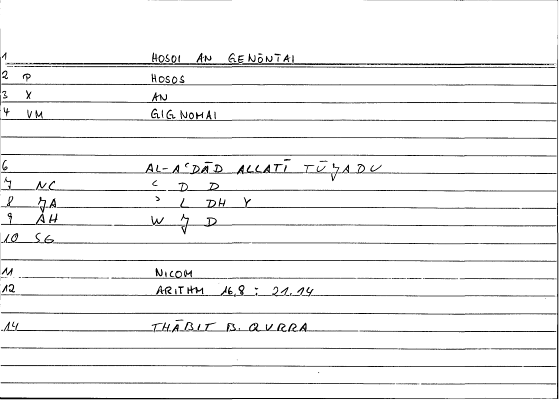 1 HOSOI AN GENŌNTAI
2 P HOSOS
3 X AN
4 VM GIGNOMAI
6 AL-AʿDĀD ALLATĪ TŪJADU
7 NC ʿ D D
8 JA ʾ L DH Y
9 AH W J D
10 SG
11 NICOM
12 ARITHM 16,8 : 21.14
14 THĀBIT B. QURRA